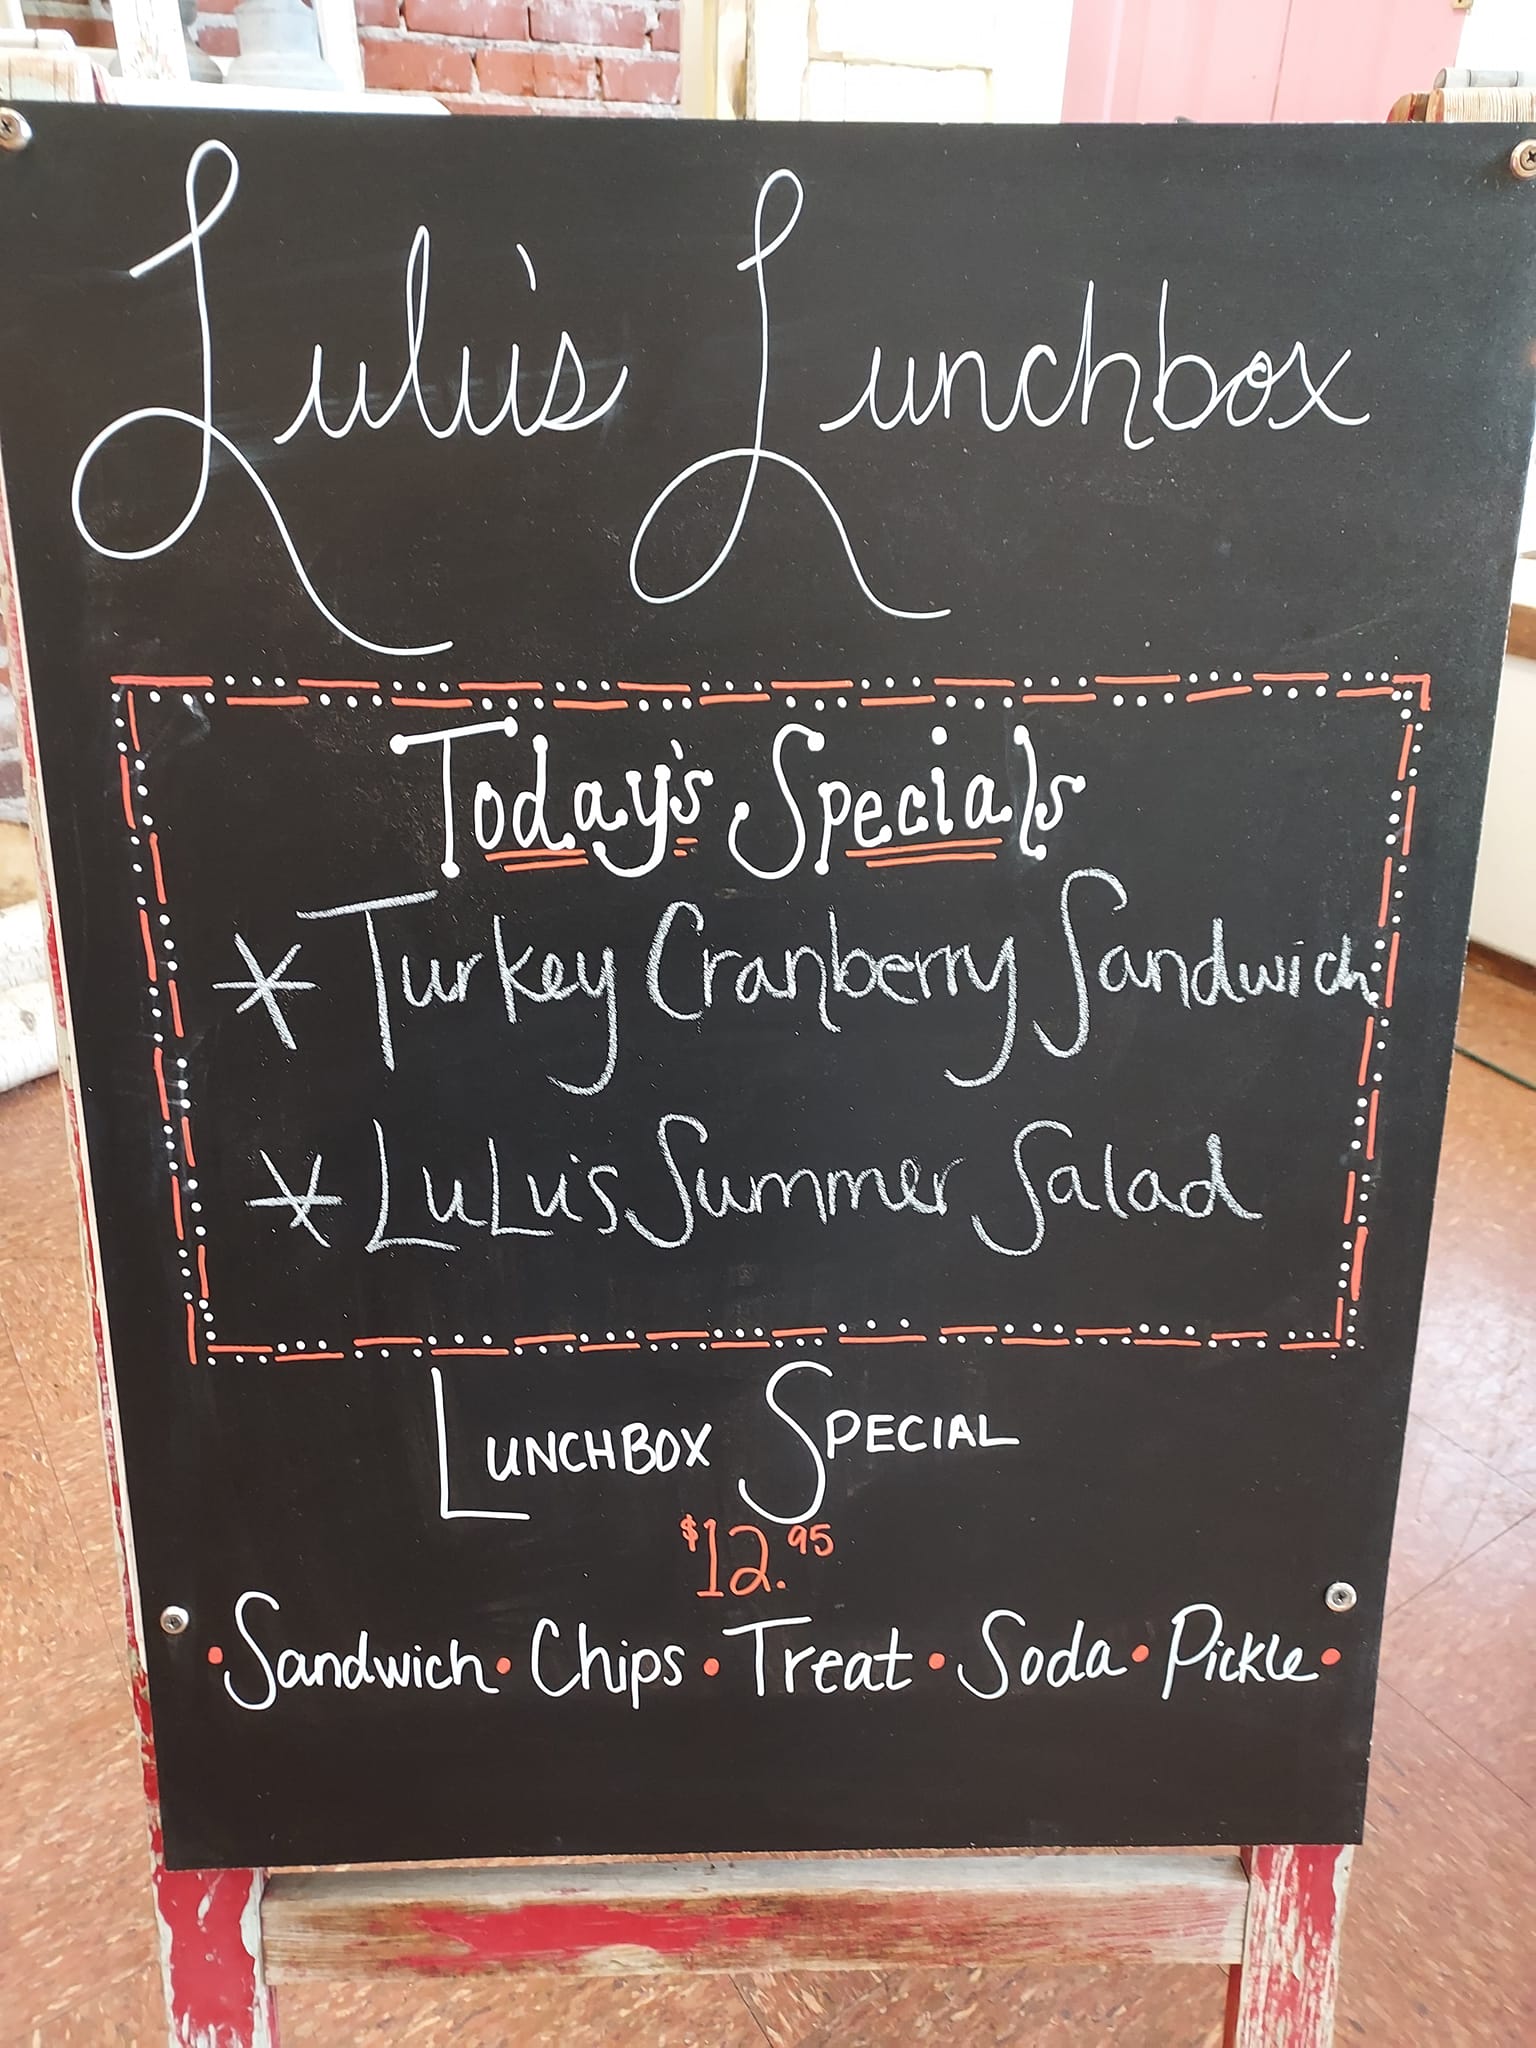 Lulu's Lunchbox
Today's Specials
* Turkey Cranberry Sandwich
* LuLu's Summer Salad
Lunchbox Special
$12.95
• Sandwich • Chips • Treat • Soda • Pickle •